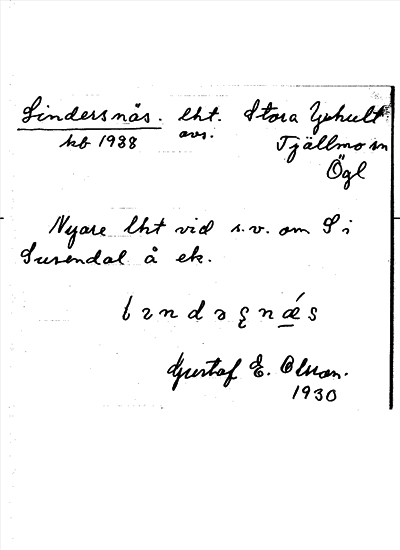 Lindersnäs. lht. Stora Yxhult
kb 1988 avs. Tjällmo sn
Ögl
Nyare lht vid s.v. om S i
Susendal å ek.
Gustaf E. Olsson.
1930